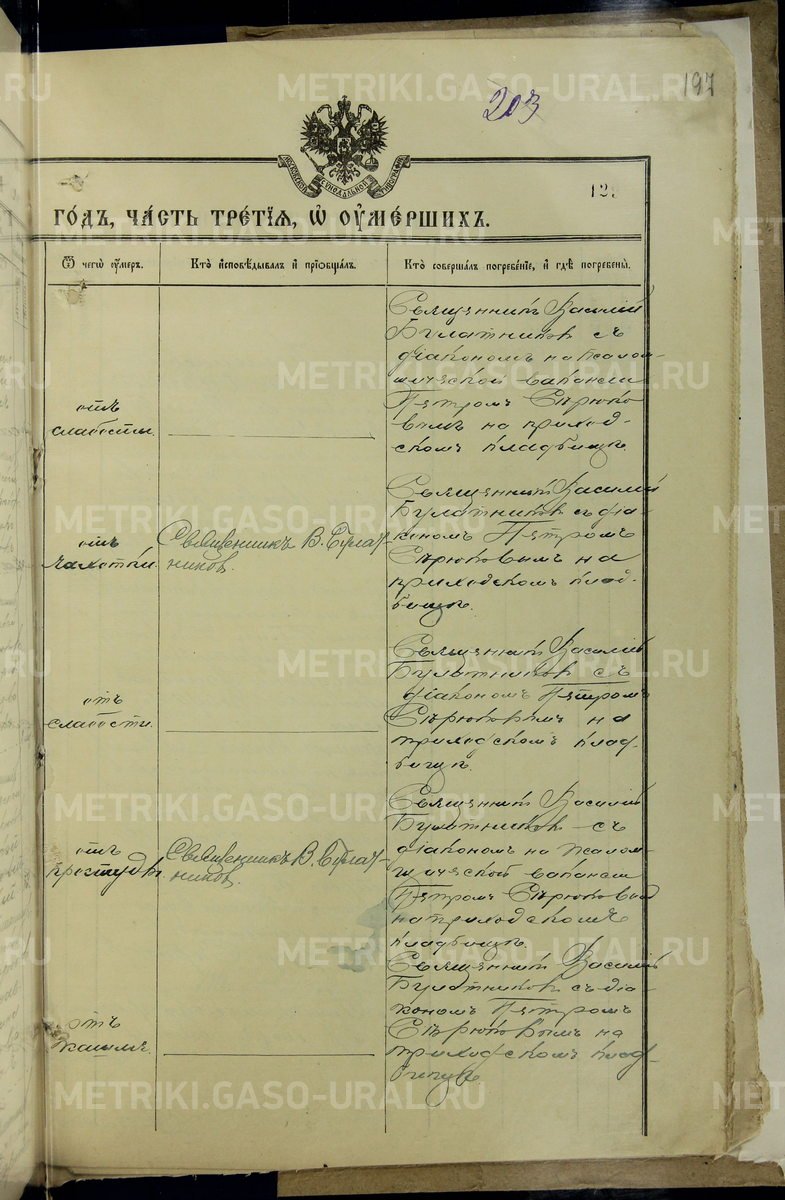 197
203
МОСКОВСКОЙ СѴНОДАЛЬНОЙ ТИПОГРАФІИ
12
ГОДЪ, ЧАСТЬ ТРЕТІЯ, Ѡ ОУМЕРШИХЪ.
Ѿ чегѡ оумеръ.
Кто исповѣдывалъ и пріобщалъ.
Кто совершалъ погребеніе, и гдѣ погребены.
отъ
слабости.
Священникъ Василій
Булатниковъ съ
діакономъ на псалом-
щической вакансіи
Петромъ Сѣрюко
вымъ на приход-
скомъ кладбищѣ.
отъ
чахотки.
Священникъ В. Булат-
никовъ.
Священникъ Василій
Булатниковъ съ діа-
кономъ Петромъ
Сѣрюковымъ на
приходскомъ клад-
бищѣ.
отъ
слабости.
Священникъ Василій
Булатниковъ съ
діакономъ Петромъ
Сѣрюковымъ на
приходскомъ клад-
бищѣ.
отъ
простуды
Священникъ В. Булат-
никовъ.
Священникъ Василій
Булатниковъ съ
діакономъ на псалом-
щической вакансіи
Петромъ
на приходскомъ
кладбищѣ.
отъ
кашля
Священникъ Василій
Булатниковъ съ діа-
кономъ Петромъ
Сѣрюковымъ на
приходскомъ клад-
бищѣ.
METRIKI.GASO-URAL.RU